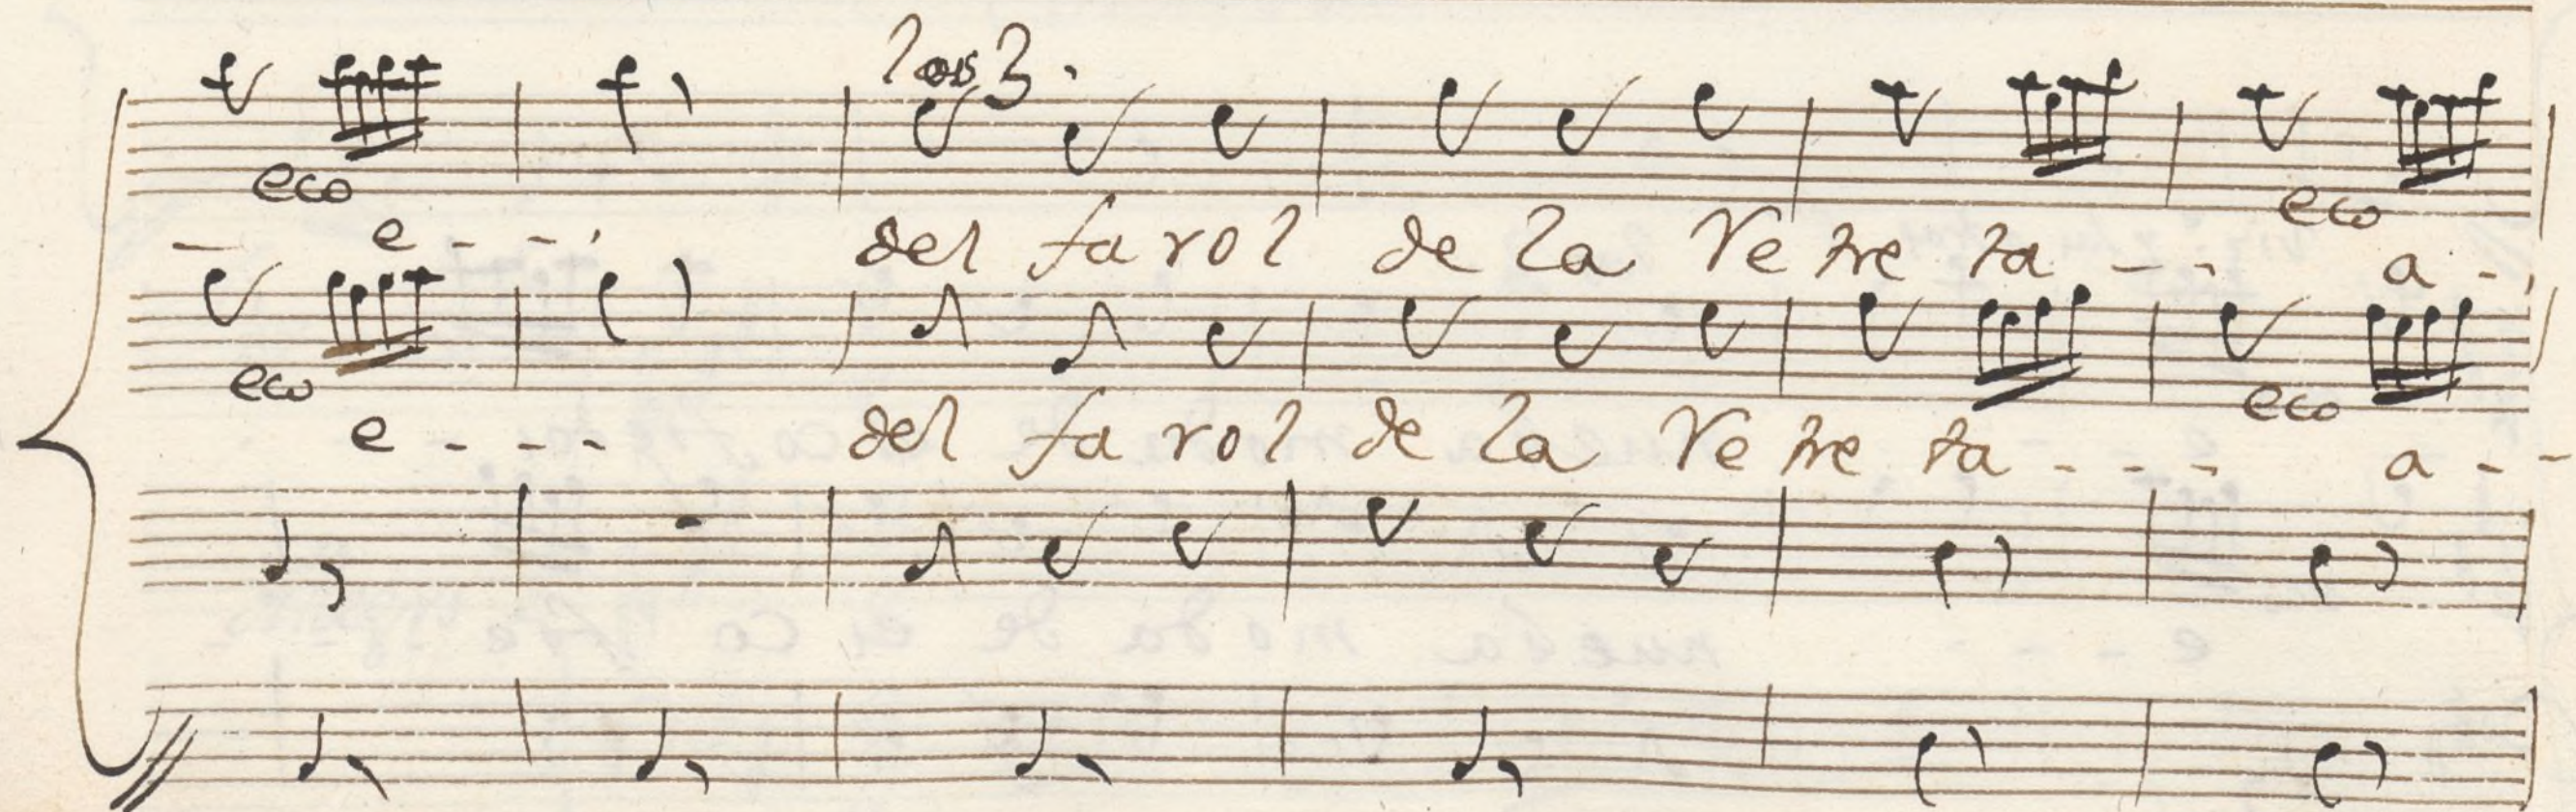 los 3.
eco eco
- e - - . del fa rol de la Re tre ta - - a - .
eco eco
e - - - del fa rol de la Re tre ta - - - a - -